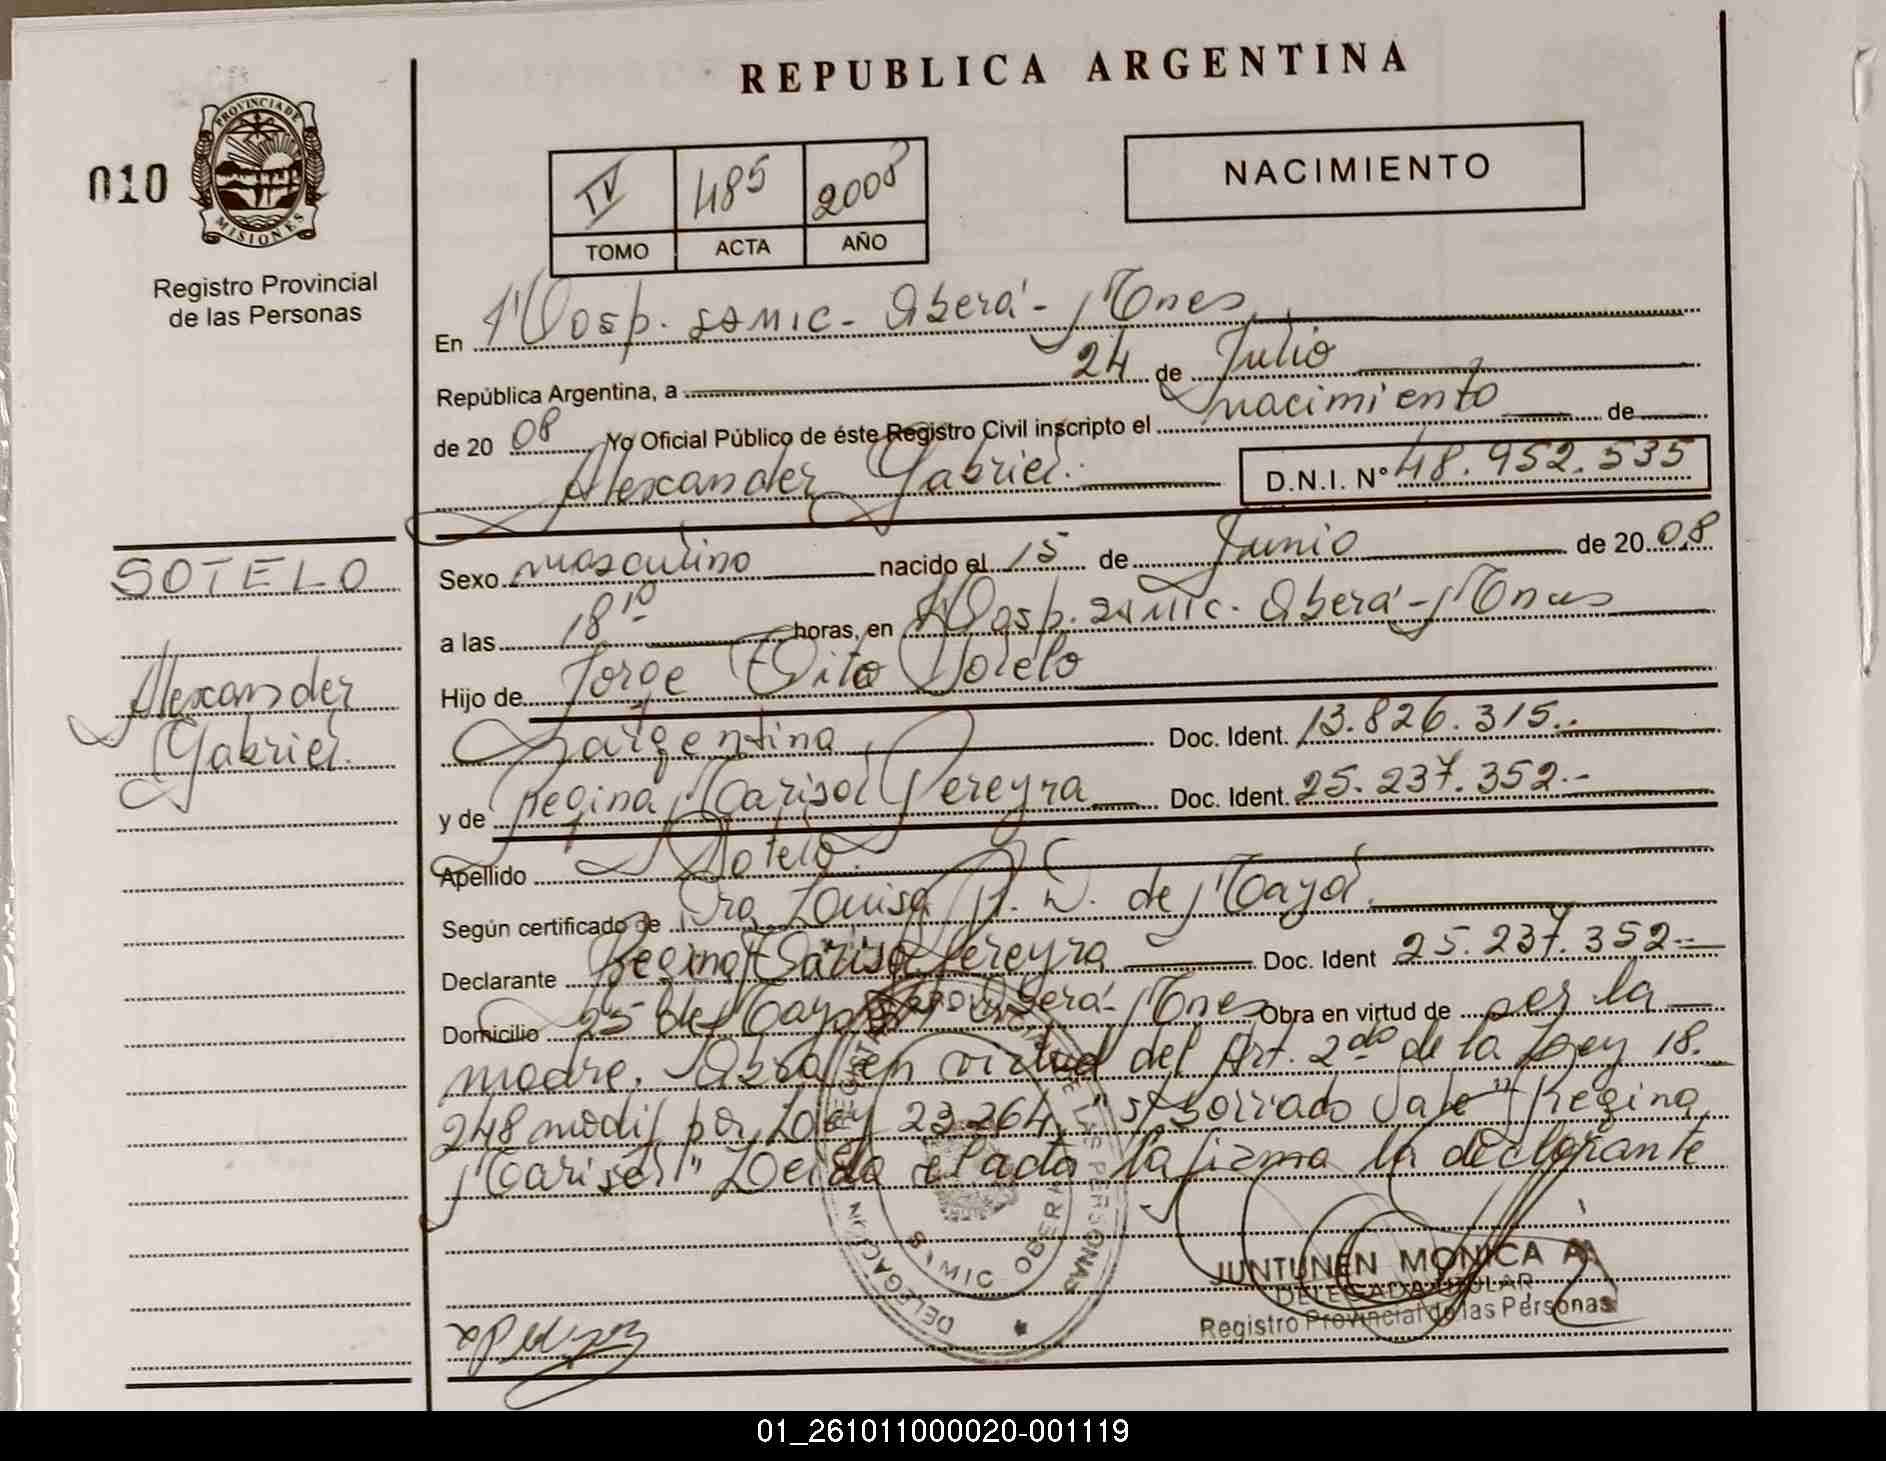 REPUBLICA ARGENTINA
010
PROVINCIA DE MISIONES
Registro Provincial
de las Personas
IV 485 2008
TOMO ACTA AÑO
NACIMIENTO
En Hosp. SAMIC - Oberá - Mnes
República Argentina, a 24 de Julio
de 20 08 Yo Oficial Público de éste Registro Civil inscripto el nacimiento de
Alexander Gabriel. D.N.I. Nº 48.952.535
SOTELO
Alexander
Gabriel.
Sexo masculino nacido el 15 de Junio de 20 08
a las 18 10 horas, en Hosp. SAMIC - Oberá - Mnes
Hijo de Jorge Sotelo
Argentina Doc. Ident. 13.826.315.-
y de Regina Marisol Pereyra Doc. Ident. 25.237.352.-
Apellido Sotelo.
Según certificado de Dra Louisa de Maya
Declarante Regina Marisol Pereyra Doc. Ident 25.237.352.-
Domicilio 25 de Mayo Oberá - Mnes Obra en virtud de ser la
madre. Obra en virtud del Art. 2do de la Ley 18.
248 modif por Ley 23.264. "s/borrado Vale" "Regina
Marisol" Leída el acta la firma la declarante
DELEGACION
REGISTRO PROVINCIAL DE LAS PERSONAS
SAMIC OBERA
JUNTUNEN MONICA A.
DELEGADA TITULAR
Registro Provincial de las Personas
01_261011000020-001119